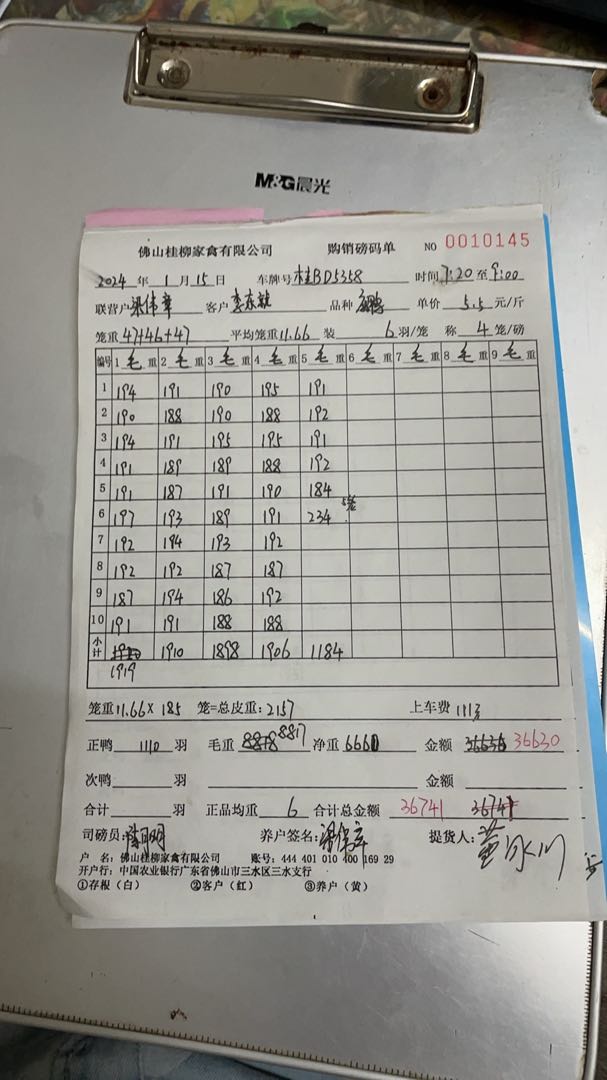 M&G晨光
佛山桂柳家禽有限公司 购销磅码单 NO 0010145
2024 年 1 月 15 日 车牌号 桂BD5358 时间 7:20 至 9:00
联营户 梁伟章 客户 品种 单价 5.5 元/斤
笼重 47+46+47 平均笼重 11.66 装 6 羽/笼 称 4 笼/磅
编号 1 毛 重 2 毛 重 3 毛 重 4 毛 重 5 毛 重 6 毛 重 7 毛 重 8 毛 重 9 毛 重
1 194 191 190 195 191
2 190 188 190 188 192
3 194 191 195 195 191
4 191 189 189 188 192
5 191 187 191 190 184
6 197 193 189 191 234 5笼
7 192 194 193 192
8 192 192 187 187
9 187 194 186 192
10 191 191 188 188
小计 1910 1898 1906 1184
1919
笼重 11.66 × 185 笼=总皮重: 2157 上车费 111
正鸭 1110 羽 毛重 8818 8817 净重 6660 金额 36630 36630
次鸭 羽 金额
合计 羽 正品均重 6 合计总金额 36741 36741
司磅员: 养户签名: 梁伟章 提货人:
户 名: 佛山桂柳家禽有限公司 账号: 444 401 010 400 169 29
开户行: 中国农业银行广东省佛山市三水区三水支行
①存根（白） ②客户（红） ③养户（黄）